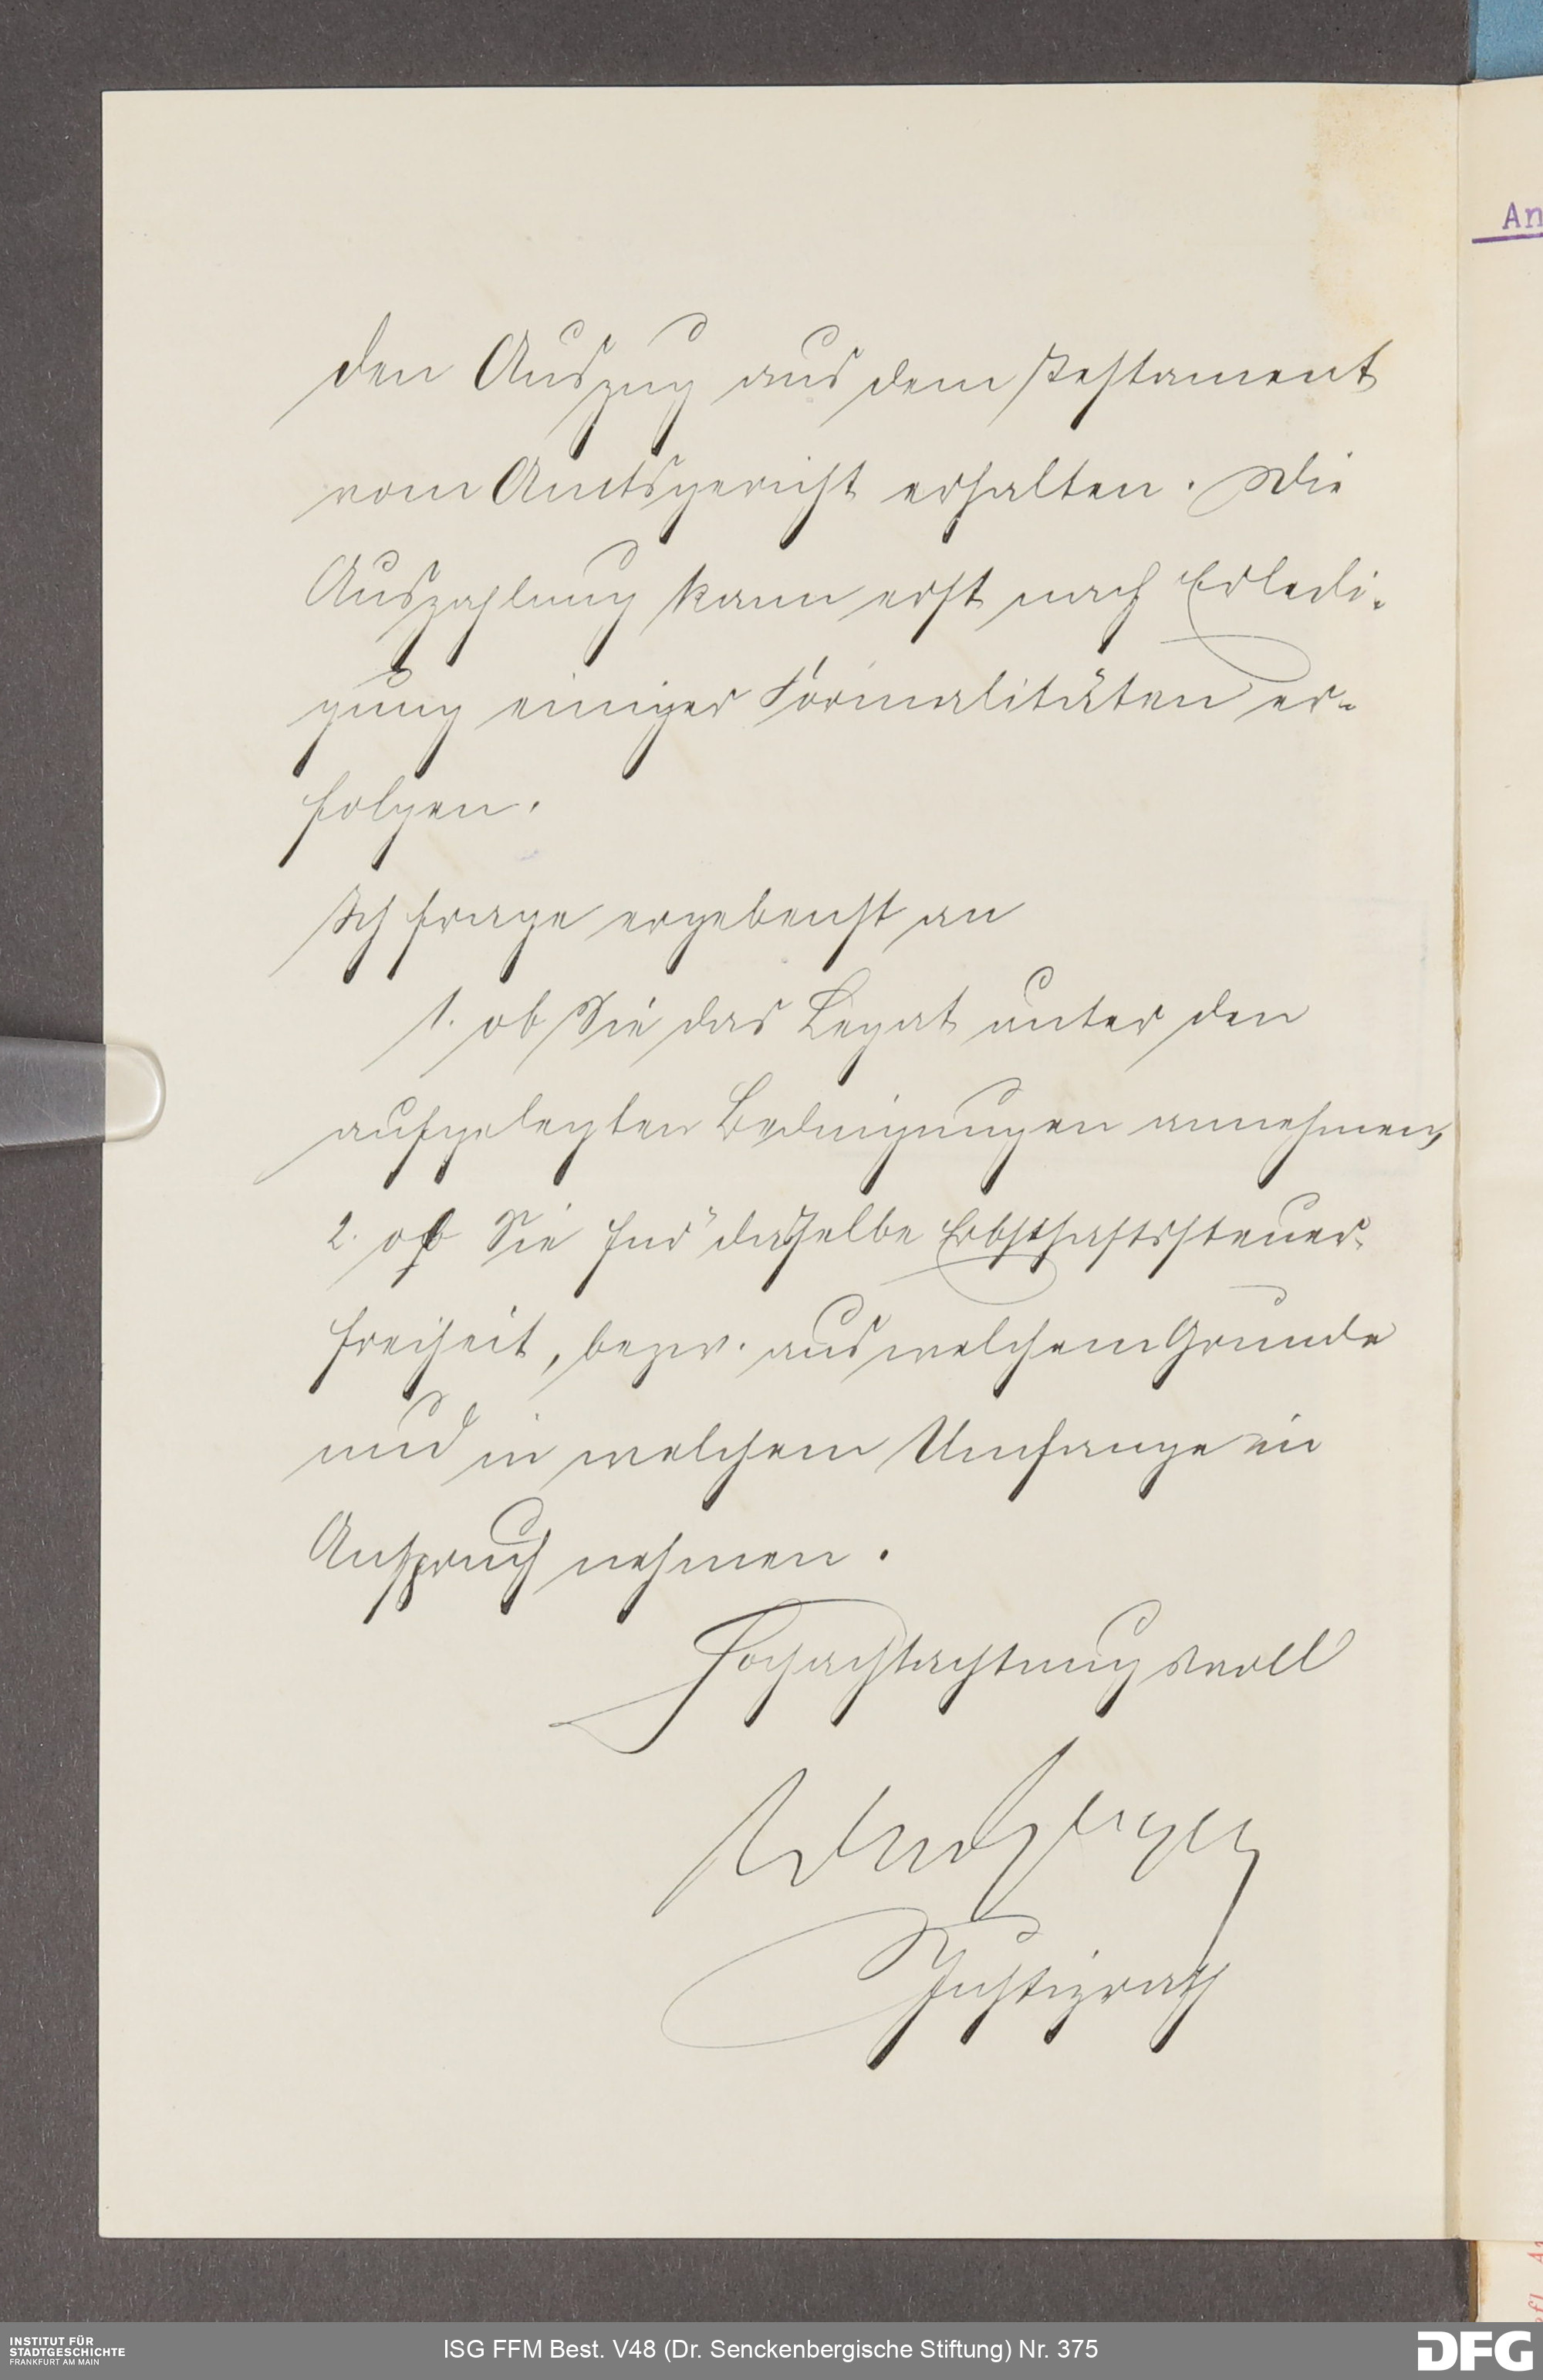 den Auszug aus dem Testament
vom Amtsgericht erhalten. Die
Auszahlung kann erst nach Erledi-
gung einiger Formalitäten er-
folgen.
Ich frage ergebenst an
1. ob Sie das Legat unter den
aufgelegten Bedingungen annehmen,
2. ob Sie für dasselbe Erbschaftssteuer-
freiheit, bezw. aus welchem Grunde
und in welchem Umfange in
Anspruch nehmen.
Hochachtachtungsvoll
Justizrath
An
INSTITUT FÜR
STADTGESCHICHTE
FRANKFURT AM MAIN
ISG FFM Best. V48 (Dr. Senckenbergische Stiftung) Nr. 375
DFG